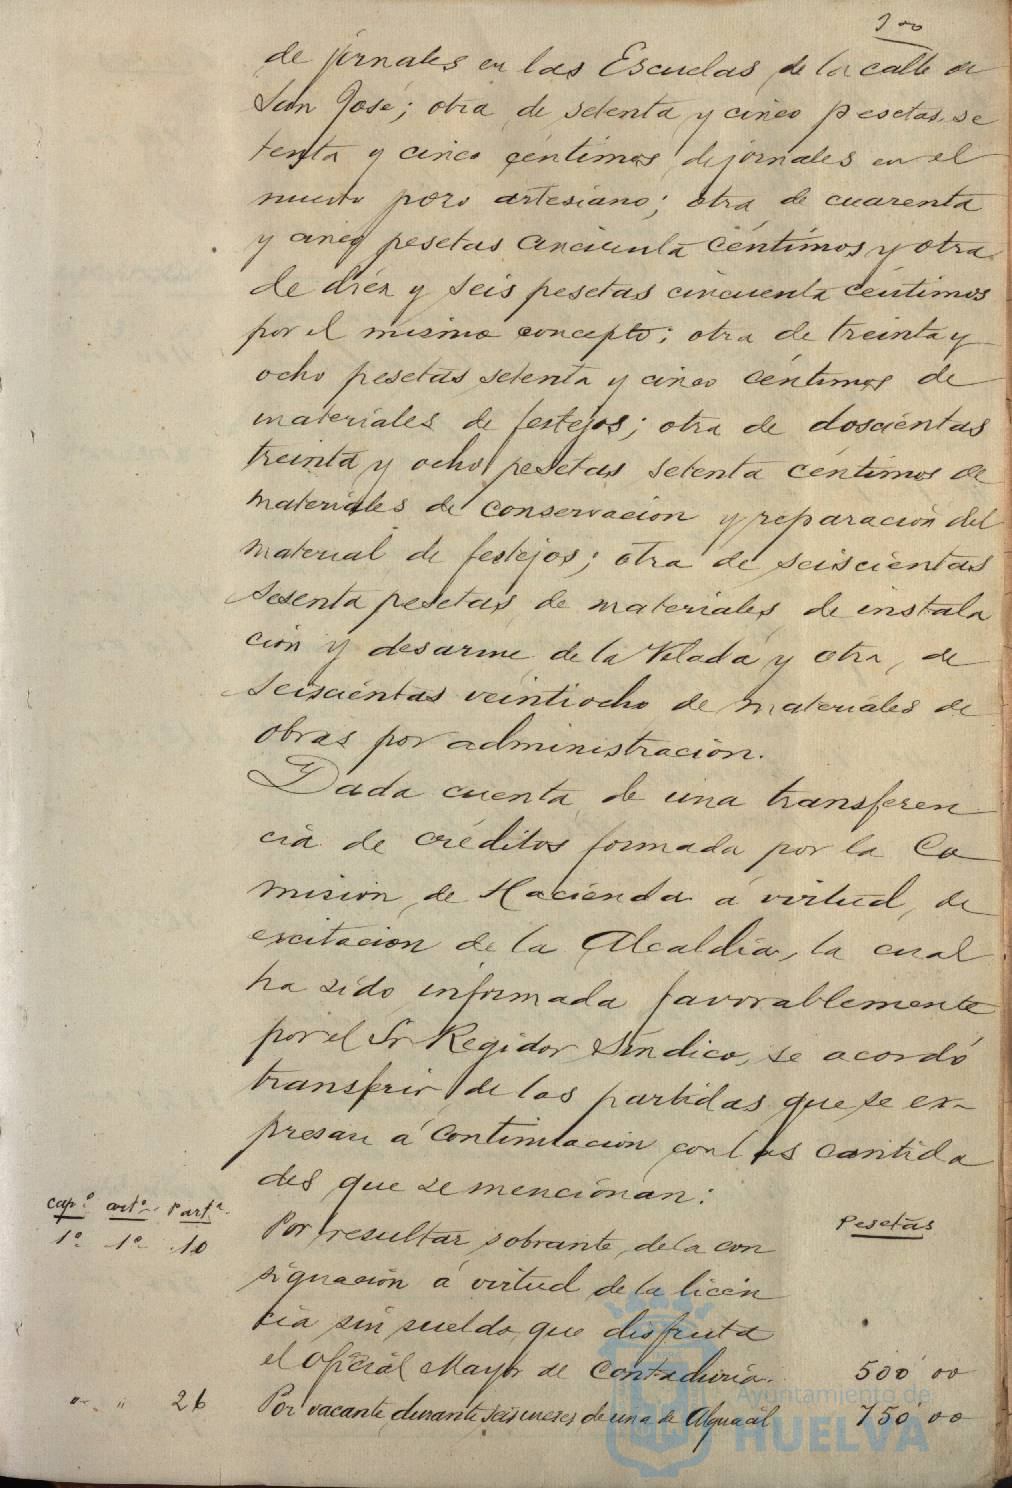 de jornales en las Escuelas de la calle de
San José; otra de setenta y cinco pesetas se
tenta y cinco céntimos de jornales en el
nuevo pozo artesiano; otra de cuarenta
y cinco pesetas cincuenta céntimos y otra
de diéz y seis pesetas cincuenta céntimos
por el mismo concepto; otra de treinta y
ocho pesetas setenta y cinco céntimos de
materiales de festejos; otra de doscientas
treinta y ocho pesetas setenta céntimos de
materiales de conservacion y reparación del
material de festejos; otra de seiscientas
sesenta pesetas de materiales de instala
ción y desarme de la Velada y otra, de
seiscientas veintiocho de materiales de
obras por administración.
Dada cuenta de una transferen
cia de créditos formada por la Co
misión de Hacienda á virtud de
excitacion de la Alcaldía, la cual
ha sido informada favorablemente
por el Sr Regidor Síndico, se acordó
transferir de las partidas que se ex-
presan á continuación con las cantida
des que se mencionan:
cap.º art.º Part.ª Pesetas
1º 1º 10 Por resultar sobrante de la con
signación á virtud de la licen
cia sin sueldo que disfruta
el Oficial Mayor de Contaduría. 500'00
" " 26 Por vacante durante seis meses de una de Alguacil 750'00
Ayuntamiento de
HUELVA